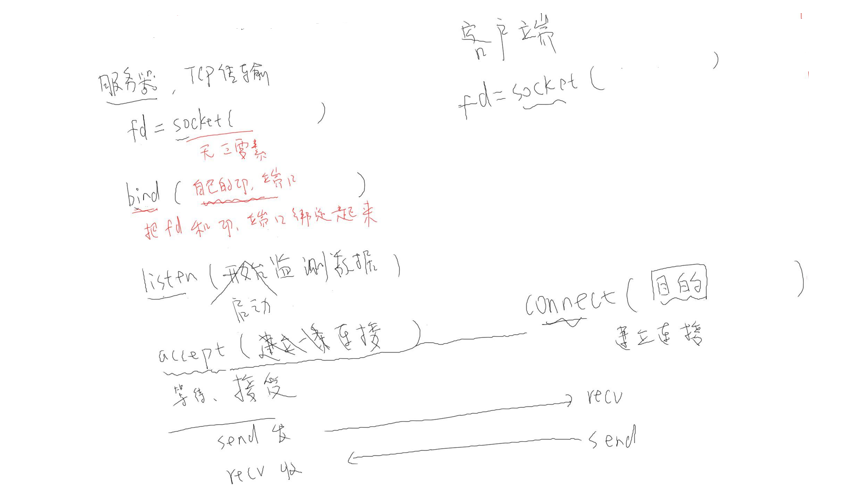 服务器，TCP传输
fd = socket( )
无三要素
bind ( 自己的IP，端口 )
把fd和IP，端口绑定起来
listen (开始监测数据)
启动
accept (建立一条连接)
等待、接受
send 发
recv 收
客户端
fd = socket( )
connect( 目的 )
建立连接
recv
send